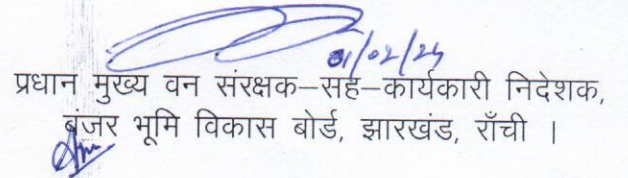 01/02/24
प्रधान मुख्य वन संरक्षक–सह–कार्यकारी निदेशक,
बंजर भूमि विकास बोर्ड, झारखंड, राँची ।